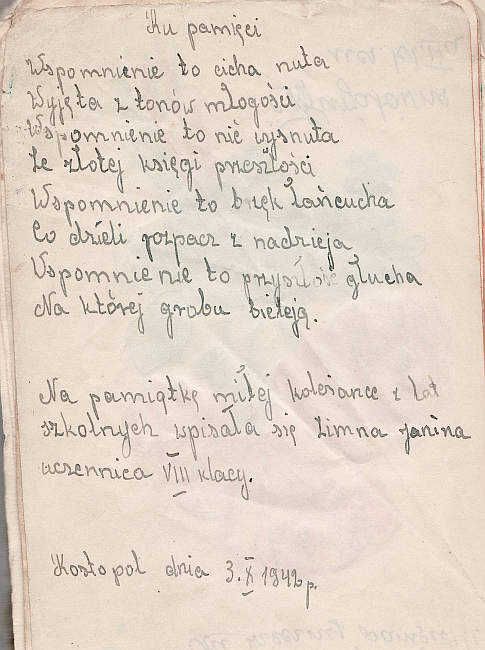 Ku pamięci
Wspomnienie to cicha nuta
Wyjęta z tonów młogości
Wspomnienie to nić wysnuta
Ze złotej księgi przeszłości
Wspomnienie to brzęk łańcucha
Co dzieli rozpacz z nadzieja
Wspomnienie to głucha
Na której grobu bieleją.
Na pamiątkę miłej koleżance z lat
szkolnych wpisała się Zimna Janina
uczennica VIII klacy.
Kostopol dnia 3.X 1942 r.